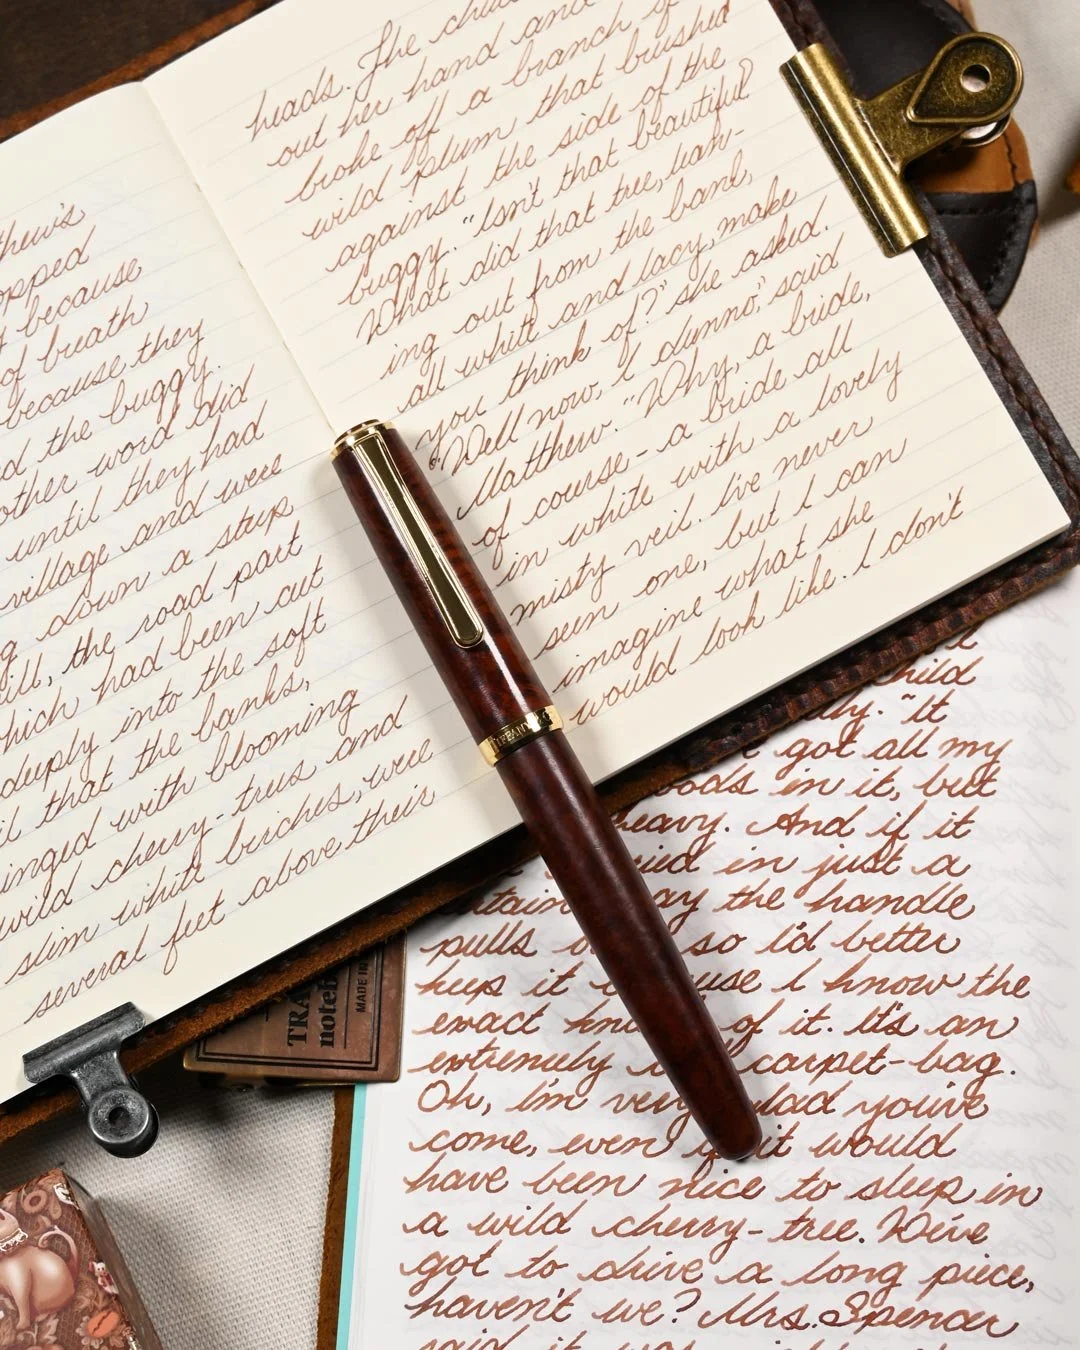 opped
because
of breath
because they
the buggy.
other word did
until they had
village and were
down a steep
the road part
hich had been cut
deeply into the soft
that the banks,
inged with blooming
wild cherry-trees and
slim white birches, were
several feet above their
heads. The
out her hand and
broke off a branch of
wild plum that brushed
against the side of the
buggy. "Isn't that beautiful?
What did that tree, lean-
ing out from the bank,
all white and lacy, make
you think of?" she asked.
"Well now, I dunno," said
Matthew. "Why, a bride,
of course - a bride all
in white with a lovely
misty veil. I've never
seen one, but I can
imagine what she
would look like. I don't
TIFFANY
hild
"It
got all my
oods in it, but
heavy. And if it
in just a
the handle
pulls so I'd better
keep it I know the
exact of it. It's an
extremely carpet-bag.
Oh, I'm very lad you've
come, even if it would
have been nice to sleep in
a wild cherry-tree. We've
got to drive a long piece,
haven't we? Mrs. Spencer
said it was
TRA
noteb
MADE IN